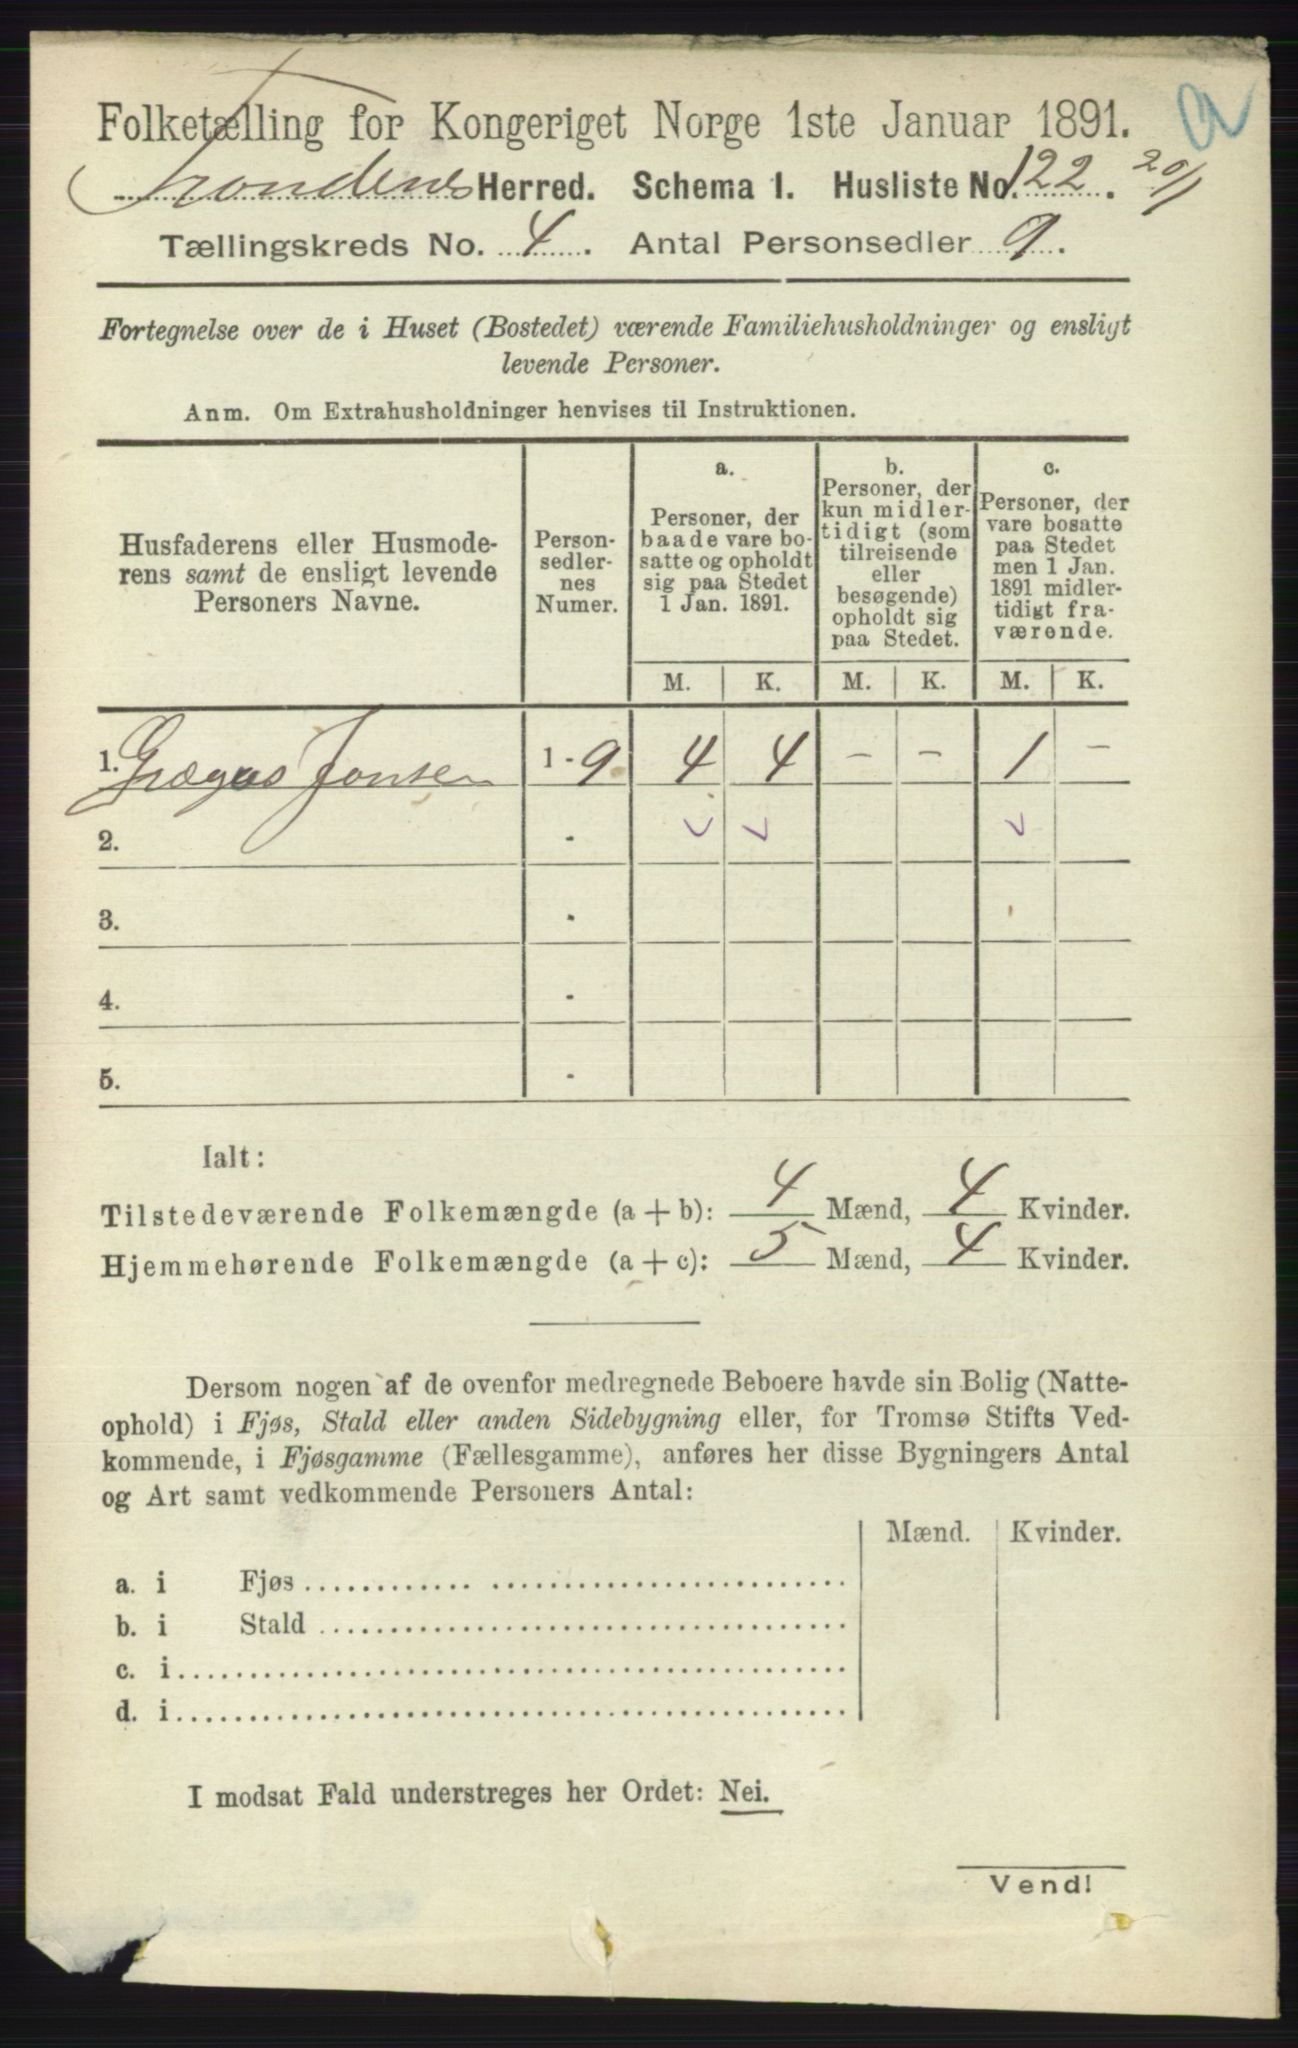 Folketælling for Kongeriget Norge 1ste Januar 1891.
Trondenes Herred. Schema 1. Husliste No. 122. 20/1
Tællingskreds No. 4. Antal Personsedler 9.
Fortegnelse over de i Huset (Bostedet) værende Familiehusholdninger og ensligt
levende Personer.
Anm. Om Extrahusholdninger henvises til Instruktionen.
Husfaderens eller Husmode-
rens samt de ensligt levende
Personers Navne.
Person-
sedler-
nes
Numer.
a.
Personer, der
baade vare bo-
satte og opholdt
sig paa Stedet
1 Jan. 1891.
b.
Personer, der
kun midler-
tidigt (som
tilreisende
eller
besøgende)
opholdt sig
paa Stedet.
c.
Personer, der
vare bosatte
paa Stedet
men 1 Jan.
1891 midler-
tidigt fra-
værende.
M. K. M. K. M. K.
1. Grægus Jonsen 1 - 9 4 4 - - 1 -
2. -
3. -
4. -
5. -
Ialt:
Tilstedeværende Folkemængde (a + b): 4 Mænd, 4 Kvinder.
Hjemmehørende Folkemængde (a + c): 5 Mænd, 4 Kvinder.
Dersom nogen af de ovenfor medregnede Beboere havde sin Bolig (Natte-
ophold) i Fjøs, Stald eller anden Sidebygning eller, for Tromsø Stifts Ved-
kommende, i Fjøsgamme (Fællesgamme), anføres her disse Bygningers Antal
og Art samt vedkommende Personers Antal:
Mænd. Kvinder.
a. i Fjøs
b. i Stald
c. i
d. i
I modsat Fald understreges her Ordet: Nei.
Vend!